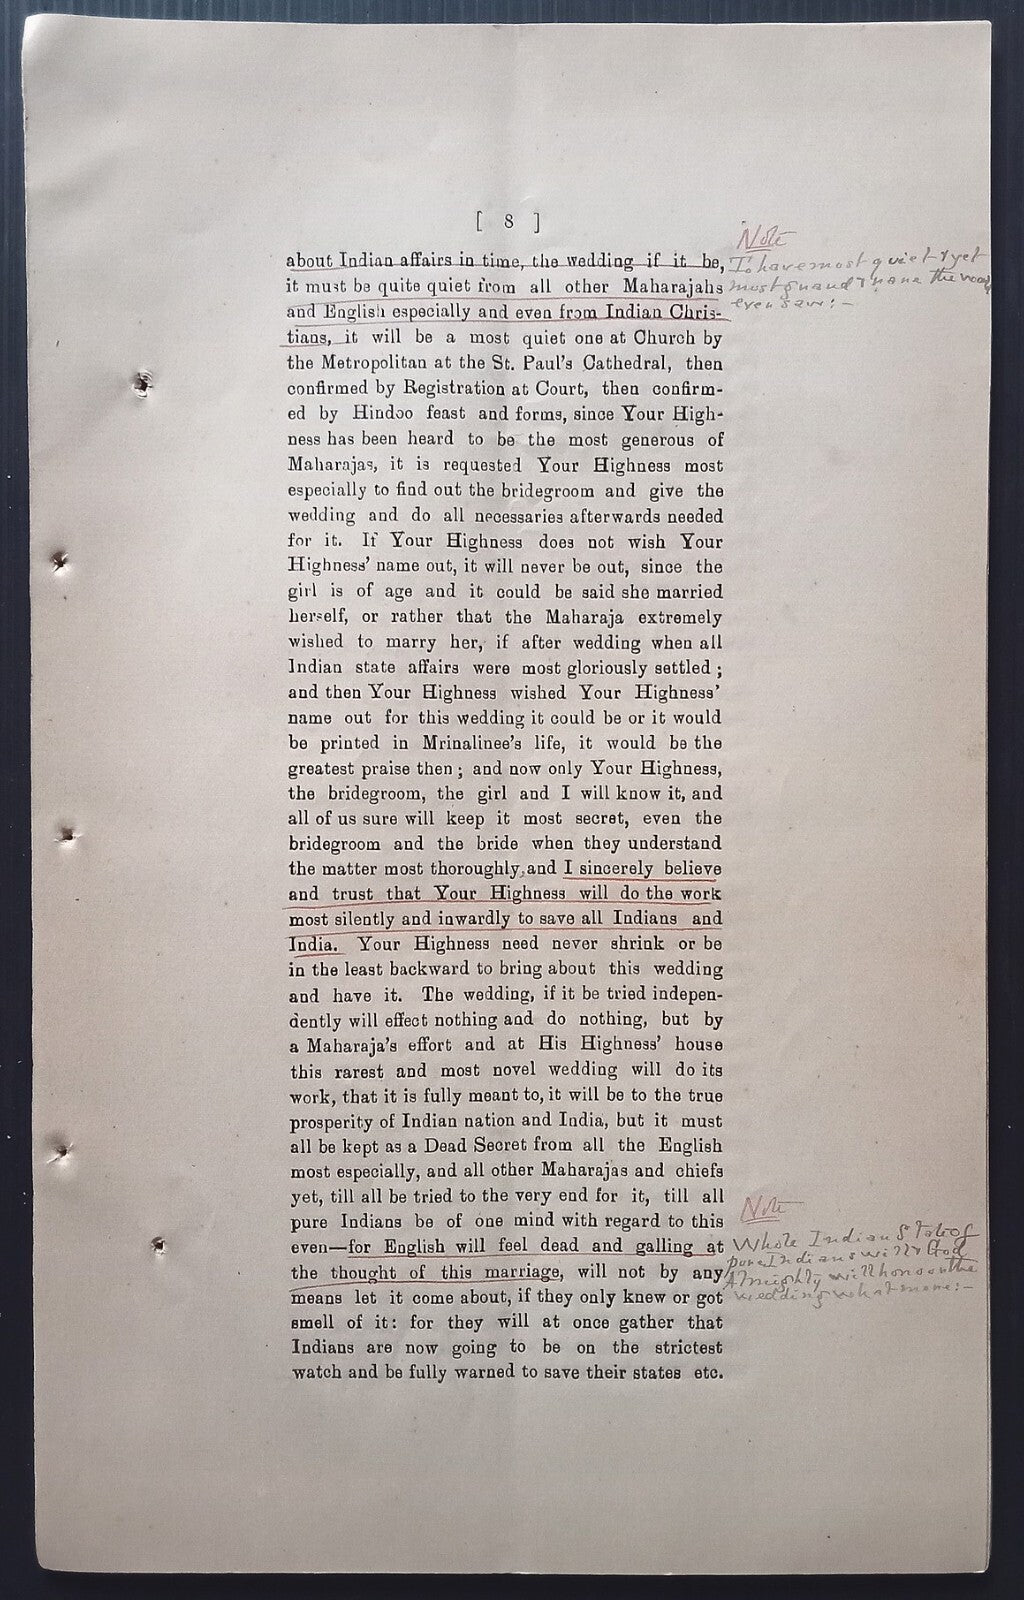 [ 8 ]
about Indian affairs in time, the wedding if it be,
it must be quite quiet from all other Maharajahs
and English especially and even from Indian Chris-
tians, it will be a most quiet one at Church by
the Metropolitan at the St. Paul's Cathedral, then
confirmed by Registration at Court, then confirm-
ed by Hindoo feast and forms, since Your High-
ness has been heard to be the most generous of
Maharajas, it is requested Your Highness most
especially to find out the bridegroom and give the
wedding and do all necessaries afterwards needed
for it. If Your Highness does not wish Your
Highness' name out, it will never be out, since the
girl is of age and it could be said she married
herself, or rather that the Maharaja extremely
wished to marry her, if after wedding when all
Indian state affairs were most gloriously settled ;
and then Your Highness wished Your Highness'
name out for this wedding it could be or it would
be printed in Mrinalinee's life, it would be the
greatest praise then ; and now only Your Highness,
the bridegroom, the girl and I will know it, and
all of us sure will keep it most secret, even the
bridegroom and the bride when they understand
the matter most thoroughly, and I sincerely believe
and trust that Your Highness will do the work
most silently and inwardly to save all Indians and
India. Your Highness need never shrink or be
in the least backward to bring about this wedding
and have it. The wedding, if it be tried indepen-
dently will effect nothing and do nothing, but by
a Maharaja's effort and at His Highness' house
this rarest and most novel wedding will do its
work, that it is fully meant to, it will be to the true
prosperity of Indian nation and India, but it must
all be kept as a Dead Secret from all the English
most especially, and all other Maharajas and chiefs
yet, till all be tried to the very end for it, till all
pure Indians be of one mind with regard to this
even—for English will feel dead and galling at
the thought of this marriage, will not by any
means let it come about, if they only knew or got
smell of it: for they will at once gather that
Indians are now going to be on the strictest
watch and be fully warned to save their states etc.
Note
To have most quiet & yet
most & none the
even saw:—
Note
Whole Indian State of
pure Indians will & God
Almighty will honour the
wedding what more:—